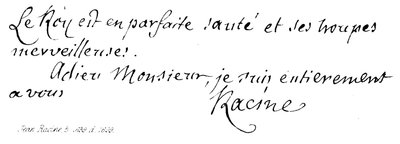 Le Roy est en parfaite santé et ses troupes
merveilleuses.
Adieu Monsieur, je suis entierement
a vous
Racine
Jean Racine